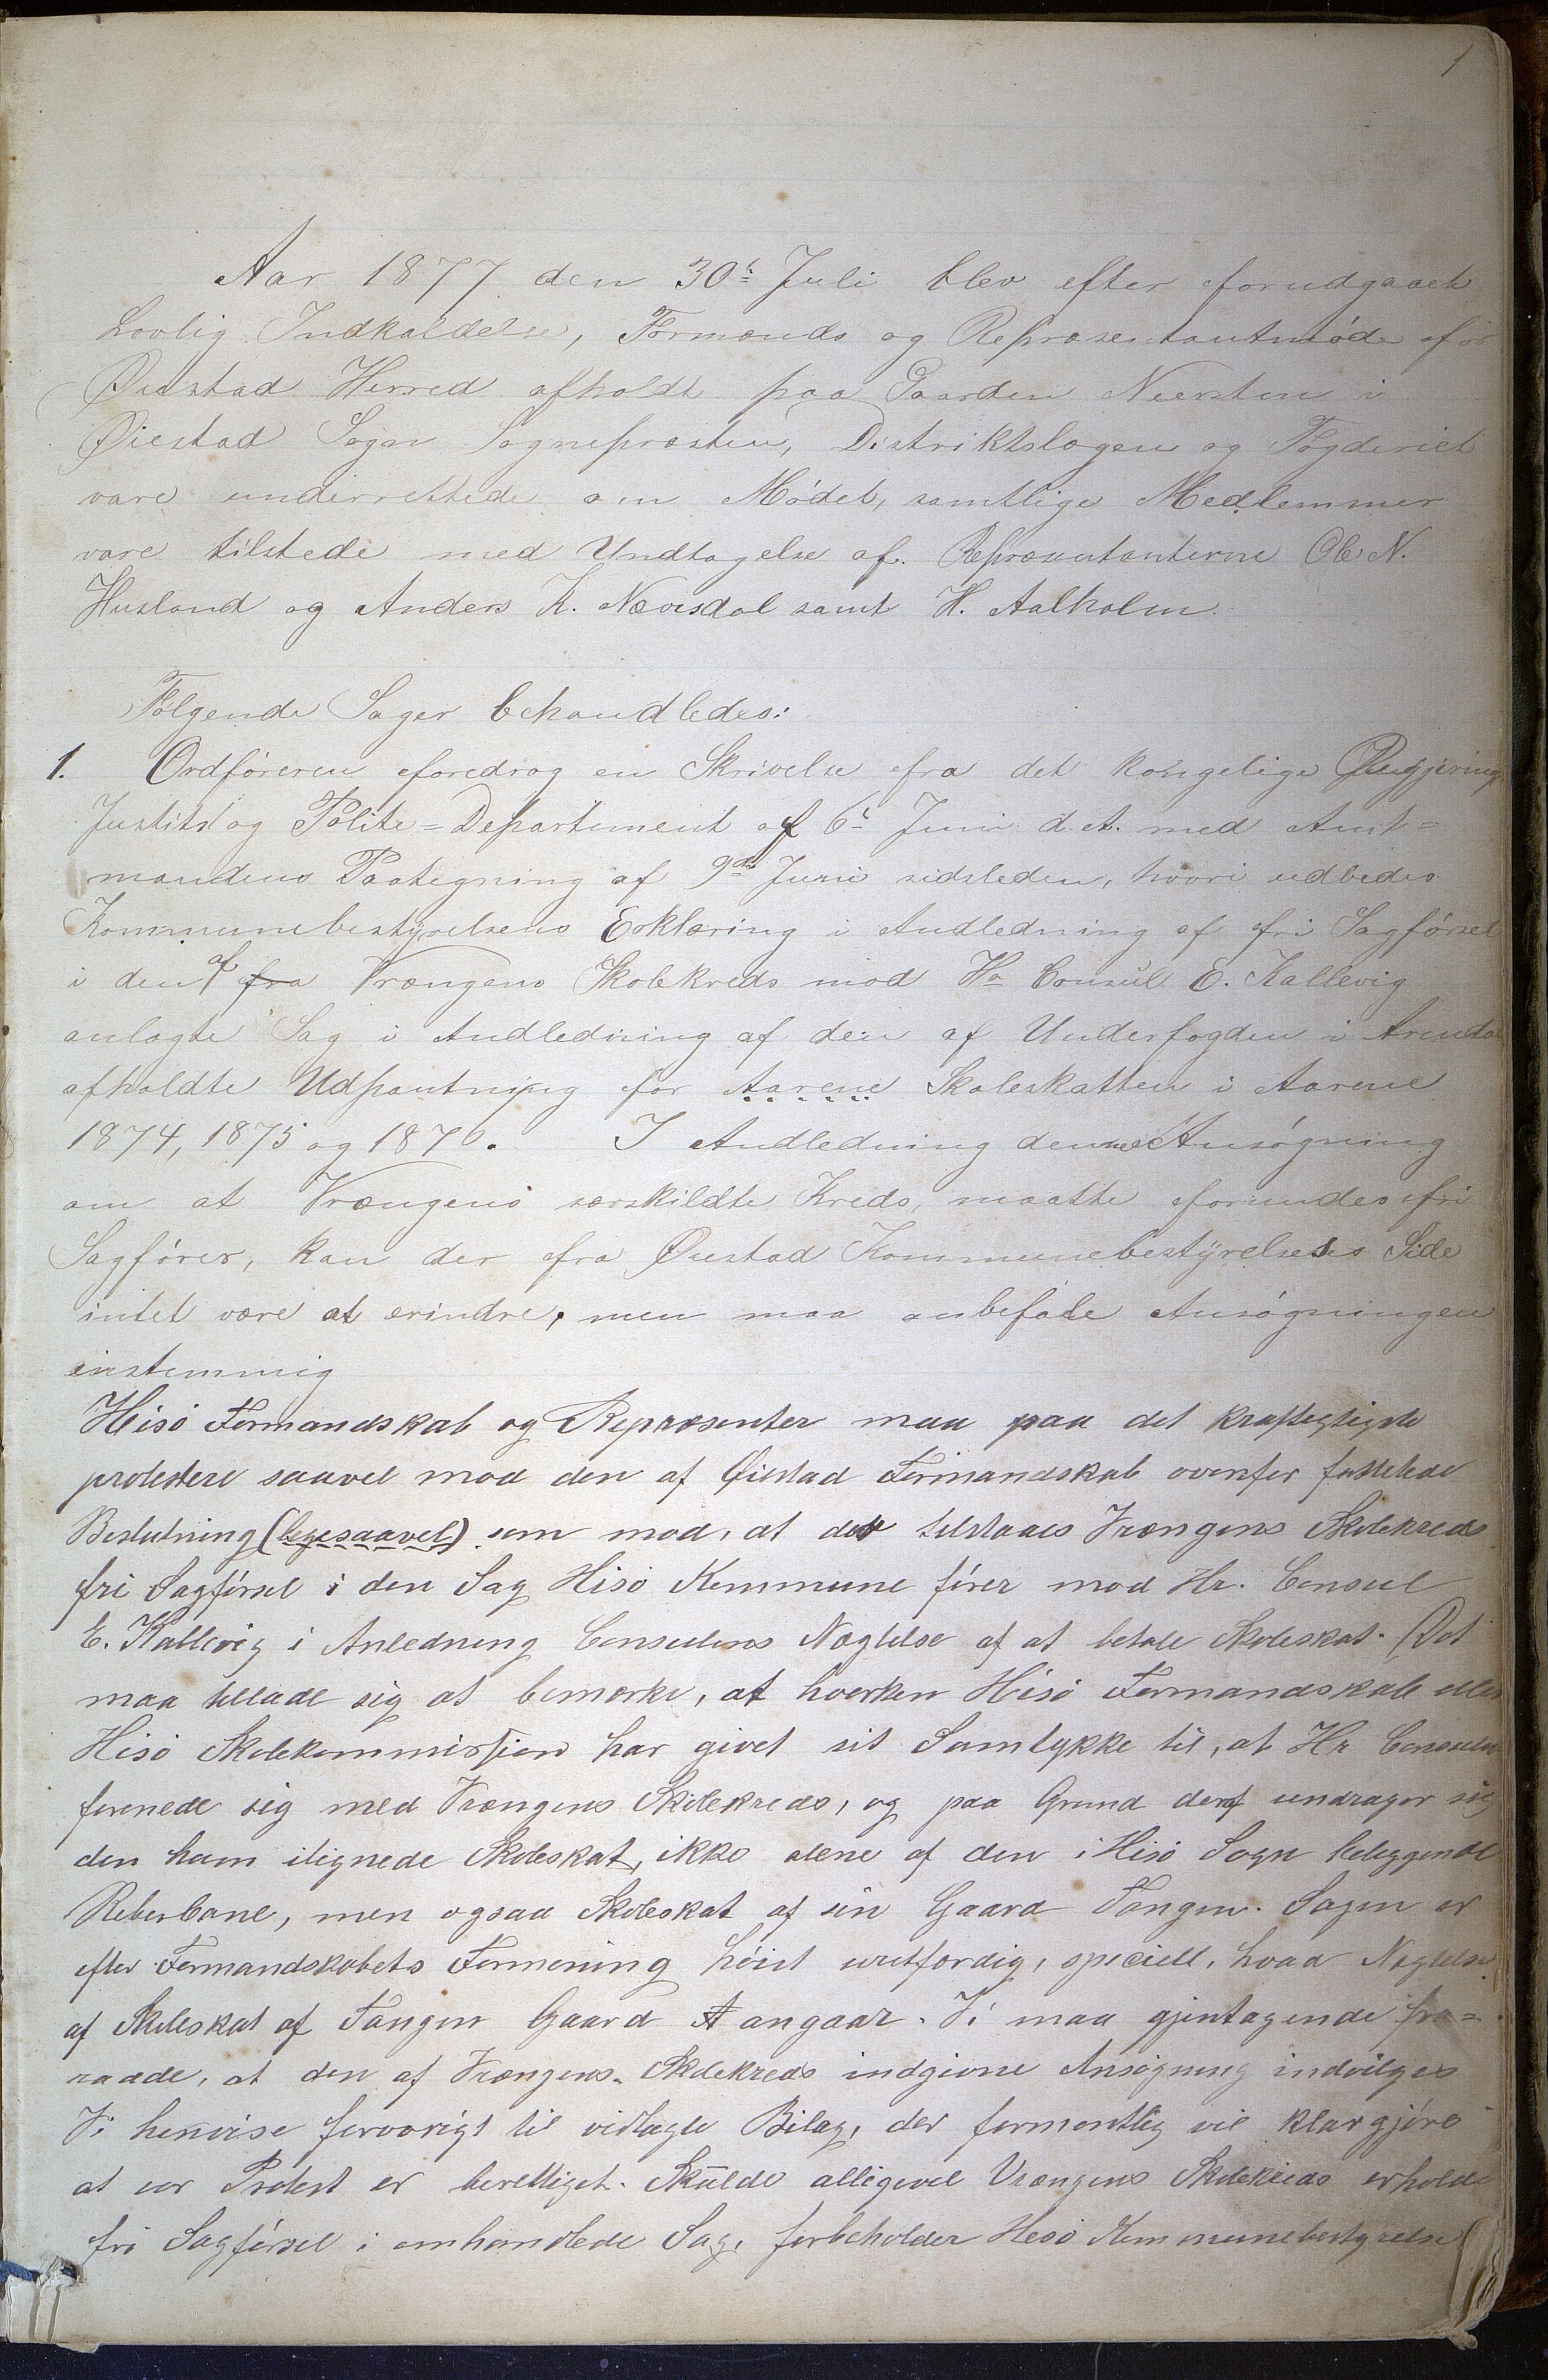 1
Aar 1877 den 30t Juli blev efter forudgaaet
Lovlig Indkaldelse, Formands og Repræsentantmøde for
Øiestad Herred afholdt paa Gaarden Neersten i
Øiestad Sogn Sognepræsten, Distriktslægen og Fogderiet
vare underrettede om Mødet, samtlige Medlemmer
vare tilstede med Undtagelse af Repræsentanterne Ole N.
Husland og Anders K. Nævisdal samt H. Aalholm.
Følgende Sager behandledes:
1. Ordføreren foredrog en Skrivelse fra det kongelige Regjerings
Justits og Politi=Departement af 6t Juni d. A. med Amt=
mandens Paategning af 9de Juni sidsleden, hvori udbedes
Kommunebestyrelsens Erklæring i Andledning af fri Sagførsel
i den af fra Vrængens Skolekreds mod Hr Consul E. Kallevig
anlagte Sag i Andledning af den af Underfogden i Arendal
afholdte Udpantning for Aarene Skoleskatten i Aarene
1874, 1875 og 1876. I Andledning denne Ansøgning
om at Vrængens særskildte Kreds, maatte forundes fri
Sagfører, kan der fra Øiestad Kommunebestyrelses Side
intet være at erindre, men maa anbefale Ansøgningen
enstemmig
Hisø Formandskab og Repræsenter maa paa det kraftigtigste
protestere saavel mod den af Øiestad Formandskab ovenfor fattetede
Beslutning (ligesaavel) som mod, at der tilstaaes Vrængens Skolekreds
fri Sagførsel i den Sag Hisø Kommune fører mod Hr. Consul
E. Kallevig i Anledning Consulens Nægtelse af at betale Skoleskat. Det
maa tillade sig at bemærke, at hverken Hisø Formandskab eller
Hisø Skolekommission har givet sit Samtykke til, at Hr Consulen
forenede sig med Vrængens Skolekreds, og paa Grund deraf undrager sig
den ham ilignede Skoleskat, ikke alene af den i Hisø Sogn beliggende
Reberbane, men ogsaa Skoleskat af sin Gaard Tangen. Sagen er
efter Formandskabets Formening høist uretfærdig, specielt, hvad Nægtelse
af Skoleskat af Tangen Gaard angaar. Vi maa gjentagende fra=
raade, at den af Vrængens Skolekreds indgivne Ansøgning indvilges
Vi henvise forøvrigt til vidlagte Bilag, der formentlig vil klargjøre
at vor Protest er berettiget. Skulde alligevel Vrængens Skolekreds erholde
fri Sagførsel i omhandlede Sag, forbeholder Hisø Kommunebestyrelse